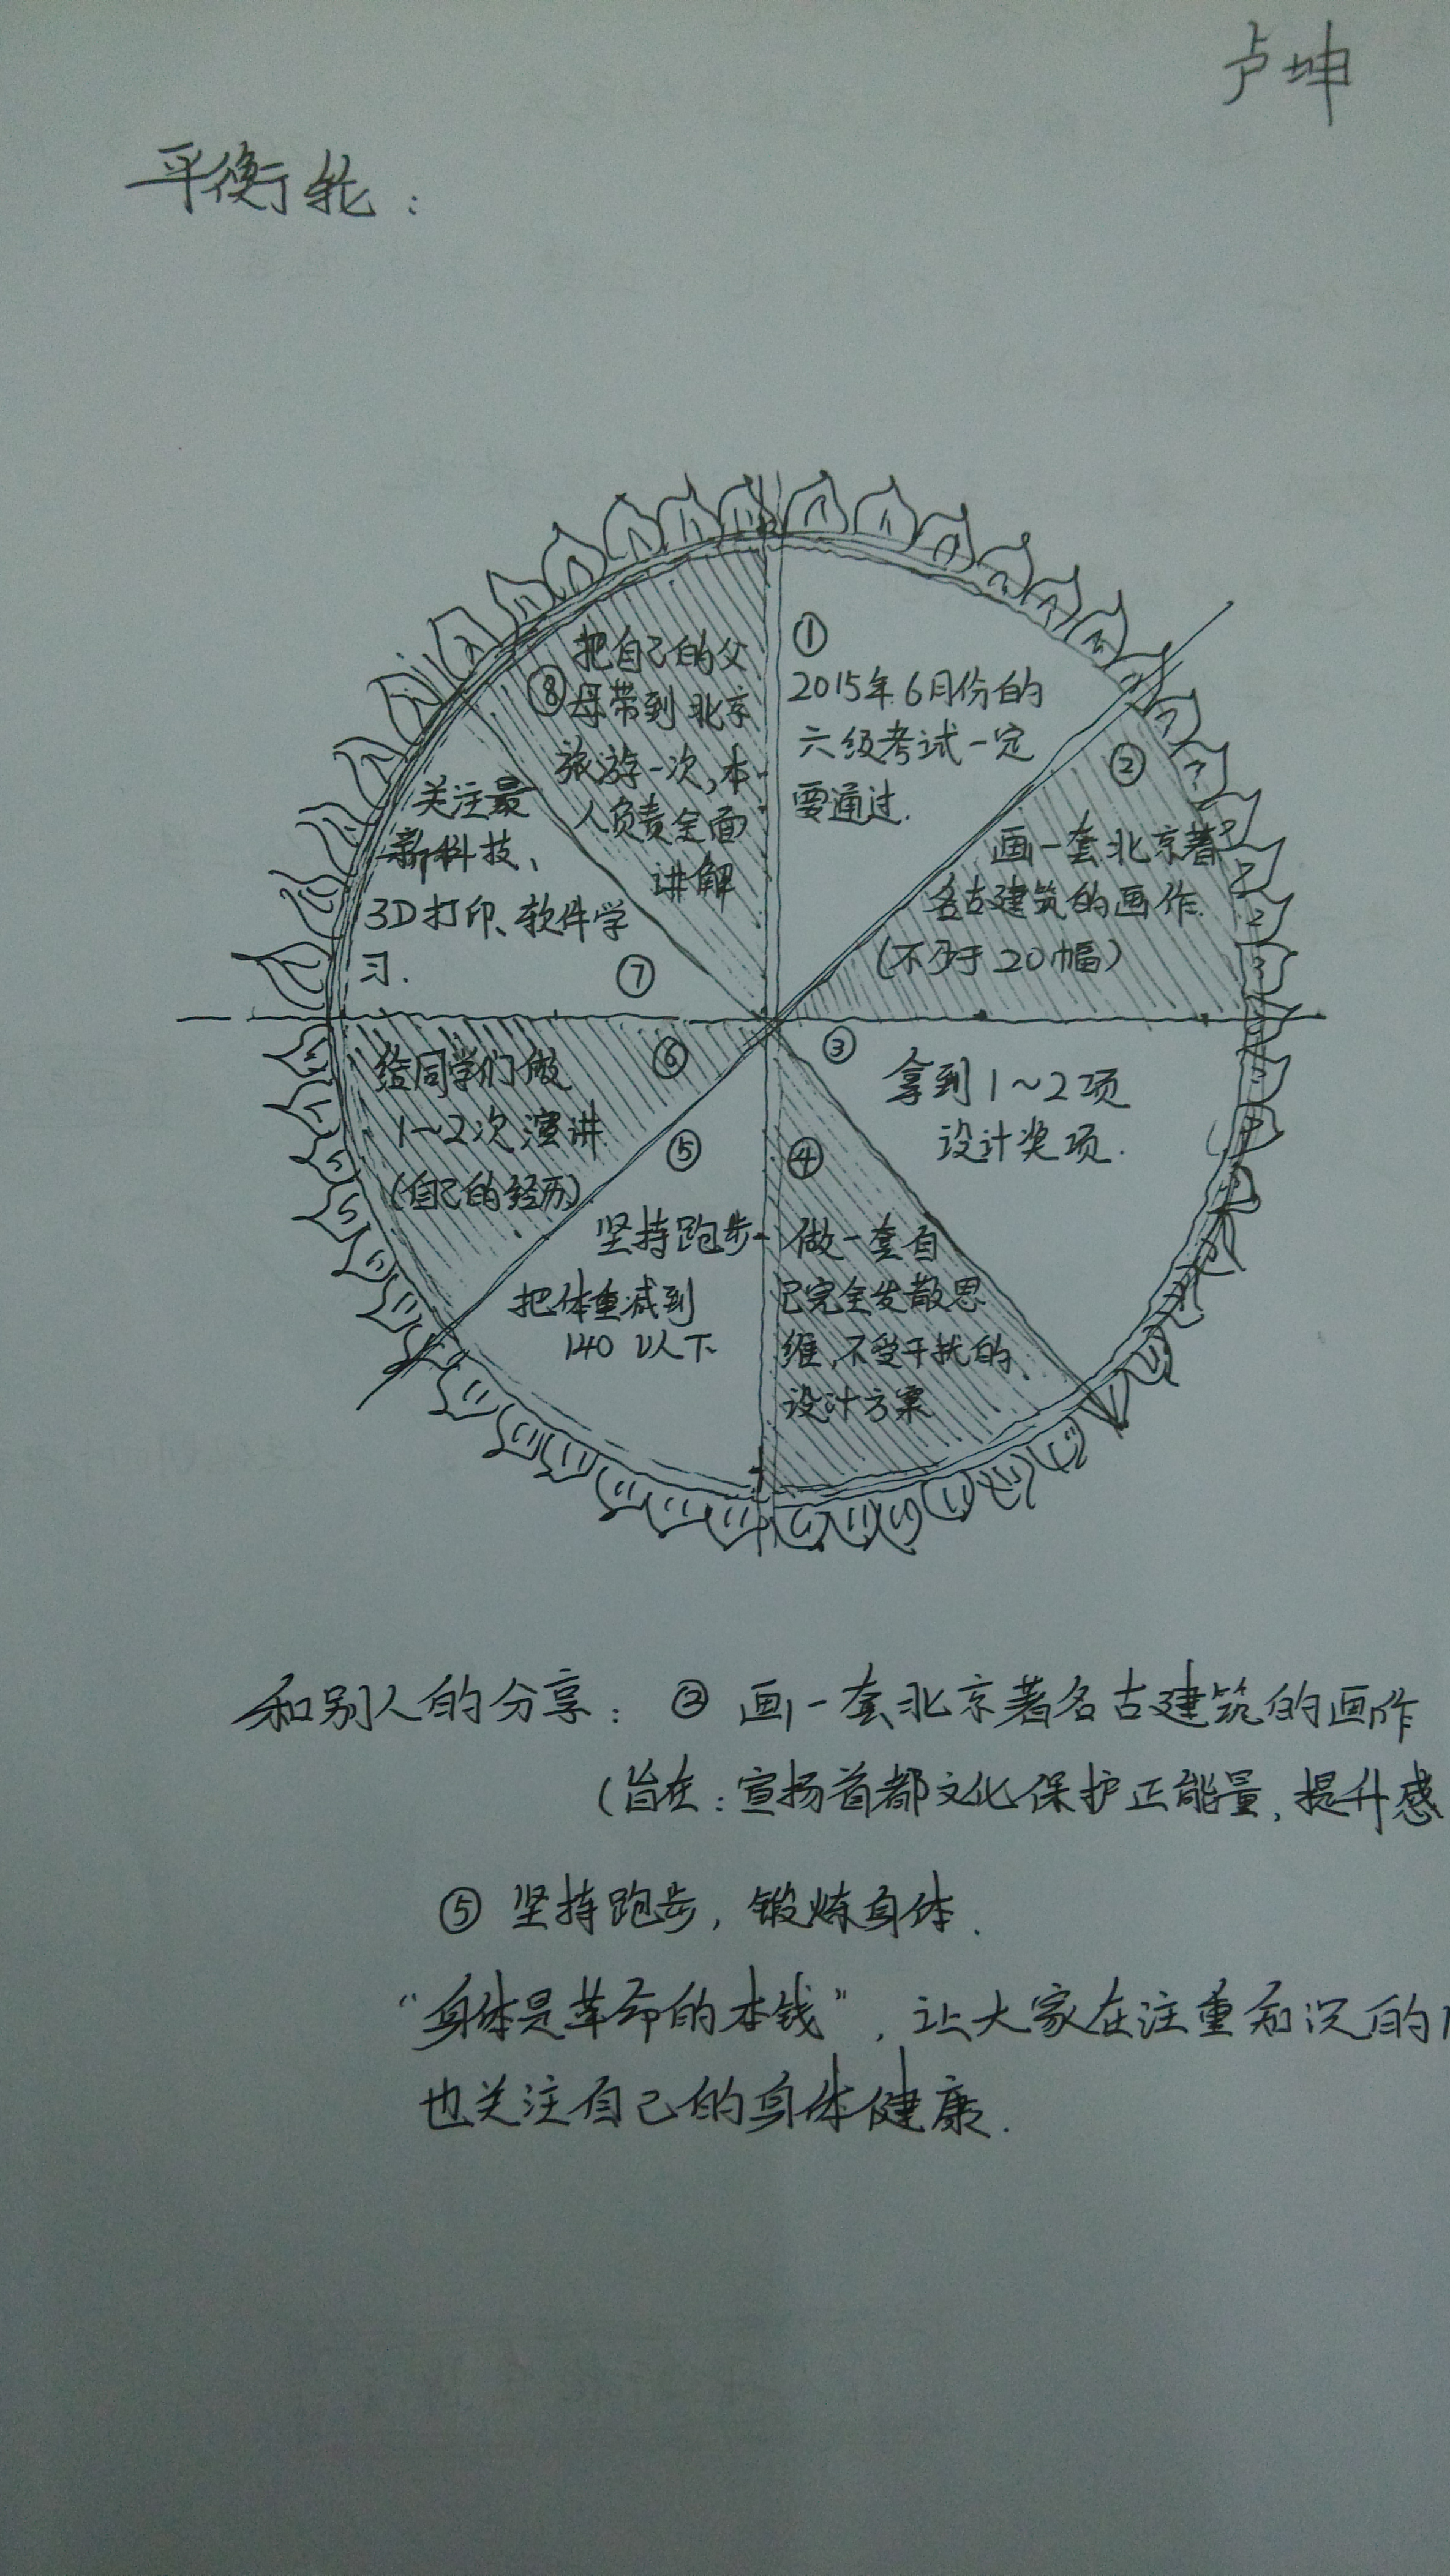 卢坤
平衡轮：
①
2015年6月份的
六级考试一定
要通过.
②
画一套北京著
名古建筑的画作.
(不少于20幅)
③
拿到1～2项
设计奖项.
④
做一套自
己完全发散思
维,不受干扰的
设计方案
⑤
坚持跑步
把体重减到
140以下
⑥
给同学们做
1～2次演讲.
(自己的经历)
⑦
关注最
新科技、
3D打印、软件学
习.
⑧
把自己的父
母带到北京
旅游一次,本
人负责全面
讲解
和别人的分享：② 画一套北京著名古建筑的画作
(旨在：宣扬首都文化保护正能量,提升感
⑤ 坚持跑步,锻炼身体.
“身体是革命的本钱”,让大家在注重知识的
也关注自己的身体健康.